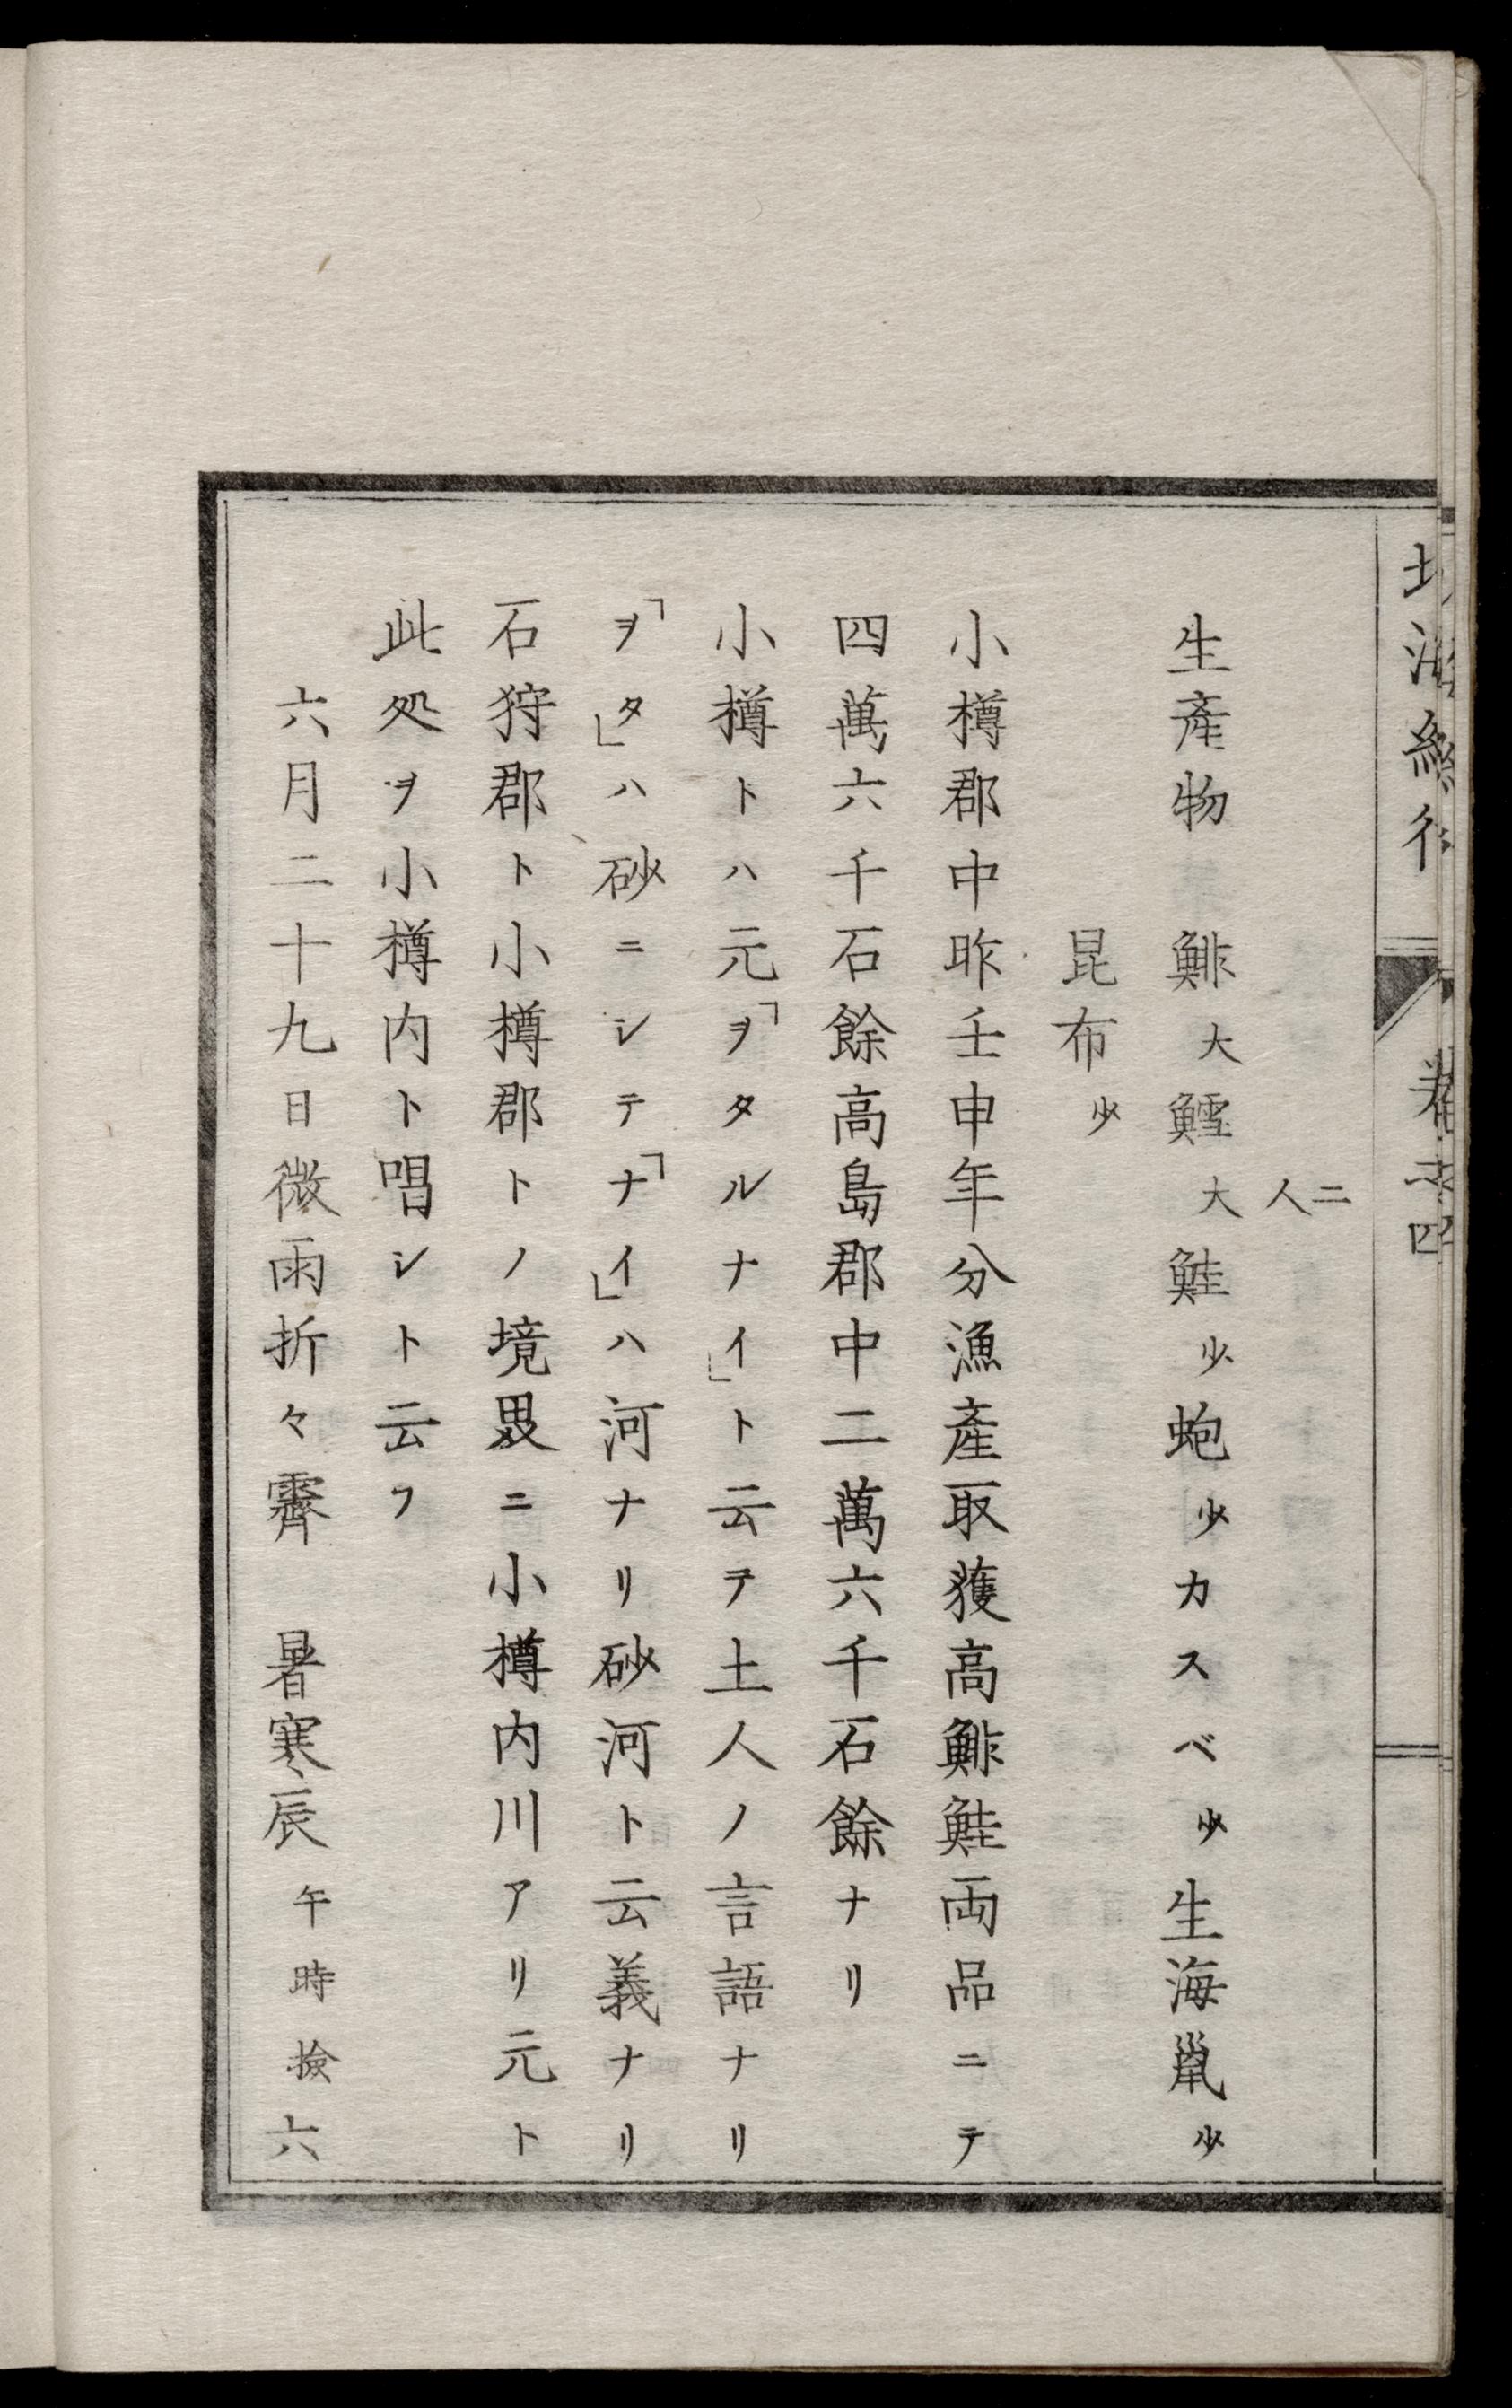 北海紀行　卷之四
二
人
生產物　鯡大鱈大鮭少蚫少カスベ少生海鼠少
昆布少
小樽郡中昨壬申年分漁產取獲高鯡鮭両品ニテ
四萬六千石餘高島郡中二萬六千石餘ナリ
小樽トハ元「ヲタルナイ」ト云テ土人ノ言語ナリ
「ヲタ」ハ砂ニシテ「ナイ」ハ河ナリ砂河ト云義ナリ
石狩郡ト小樽郡トノ境畧ニ小樽内川アリ元ト
此処ヲ小樽内ト唱シト云フ
六月二十九日微雨折々霽　暑寒辰午時撿六